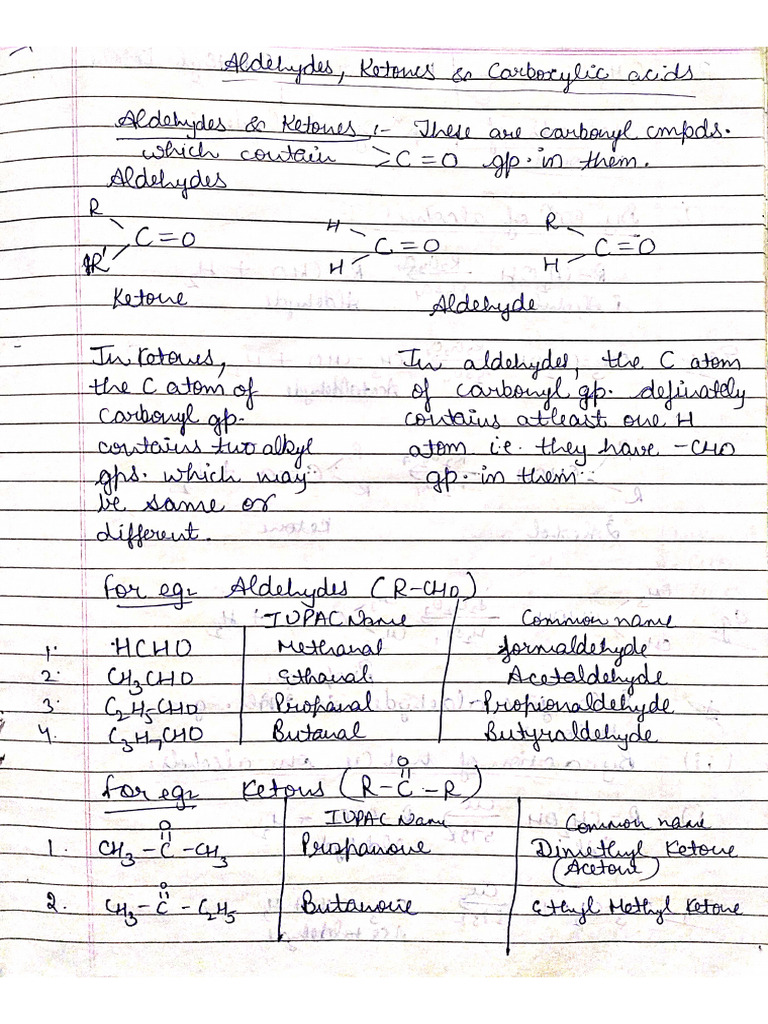 Aldehydes, Ketones & Carboxylic acids
Aldehydes & Ketones :- These are carbonyl cmpds.
which contain >C=O gp. in them.
Aldehydes
R H R
C=O C=O C=O
R' H H
Ketone Aldehyde
In Ketones, In aldehydes, the C atom
the C atom of of carbonyl gp. definately
carbonyl gp. contains atleast one H
contains two alkyl atom i.e. they have -CHO
gps. which may gp. in them.
be same or
different.
for eg:- Aldehydes (R-CHO)
IUPAC Name Common name
1. HCHO Methanal formaldehyde
2. CH3CHO Ethanal Acetaldehyde
3. C2H5CHO Propanal Propionaldehyde
4. C3H7CHO Butanal Butyraldehyde
O
for eg:- Ketons (R-C-R)
IUPAC Name Common name
O
1. CH3-C-CH3 Propanone Dimethyl Ketone
(Acetone)
O
2. CH3-C-C2H5 Butanone Ethyl Methyl Ketone